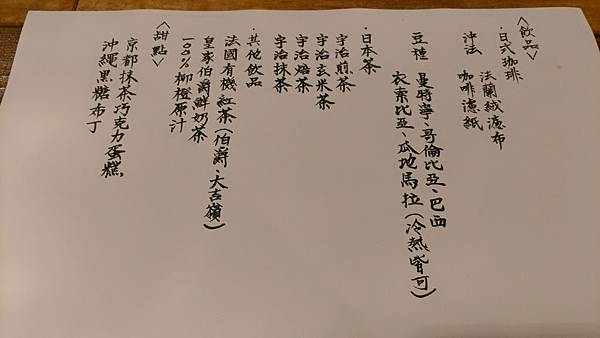 <飲品>
·日式珈琲
沖法 法蘭絨濾布
咖啡濾紙
豆種 曼特寧、哥倫比亞、巴西
衣索比亞、瓜地馬拉(冷熱皆可)
·日本茶
宇治煎茶
宇治玄米茶
宇治焙茶
宇治抹茶
·其他飲品
法國有機紅茶(伯爵、大吉嶺)
皇家伯爵鮮奶茶
100%柳橙原汁
<甜點>
京都抹茶巧克力蛋糕
沖繩黑糖布丁